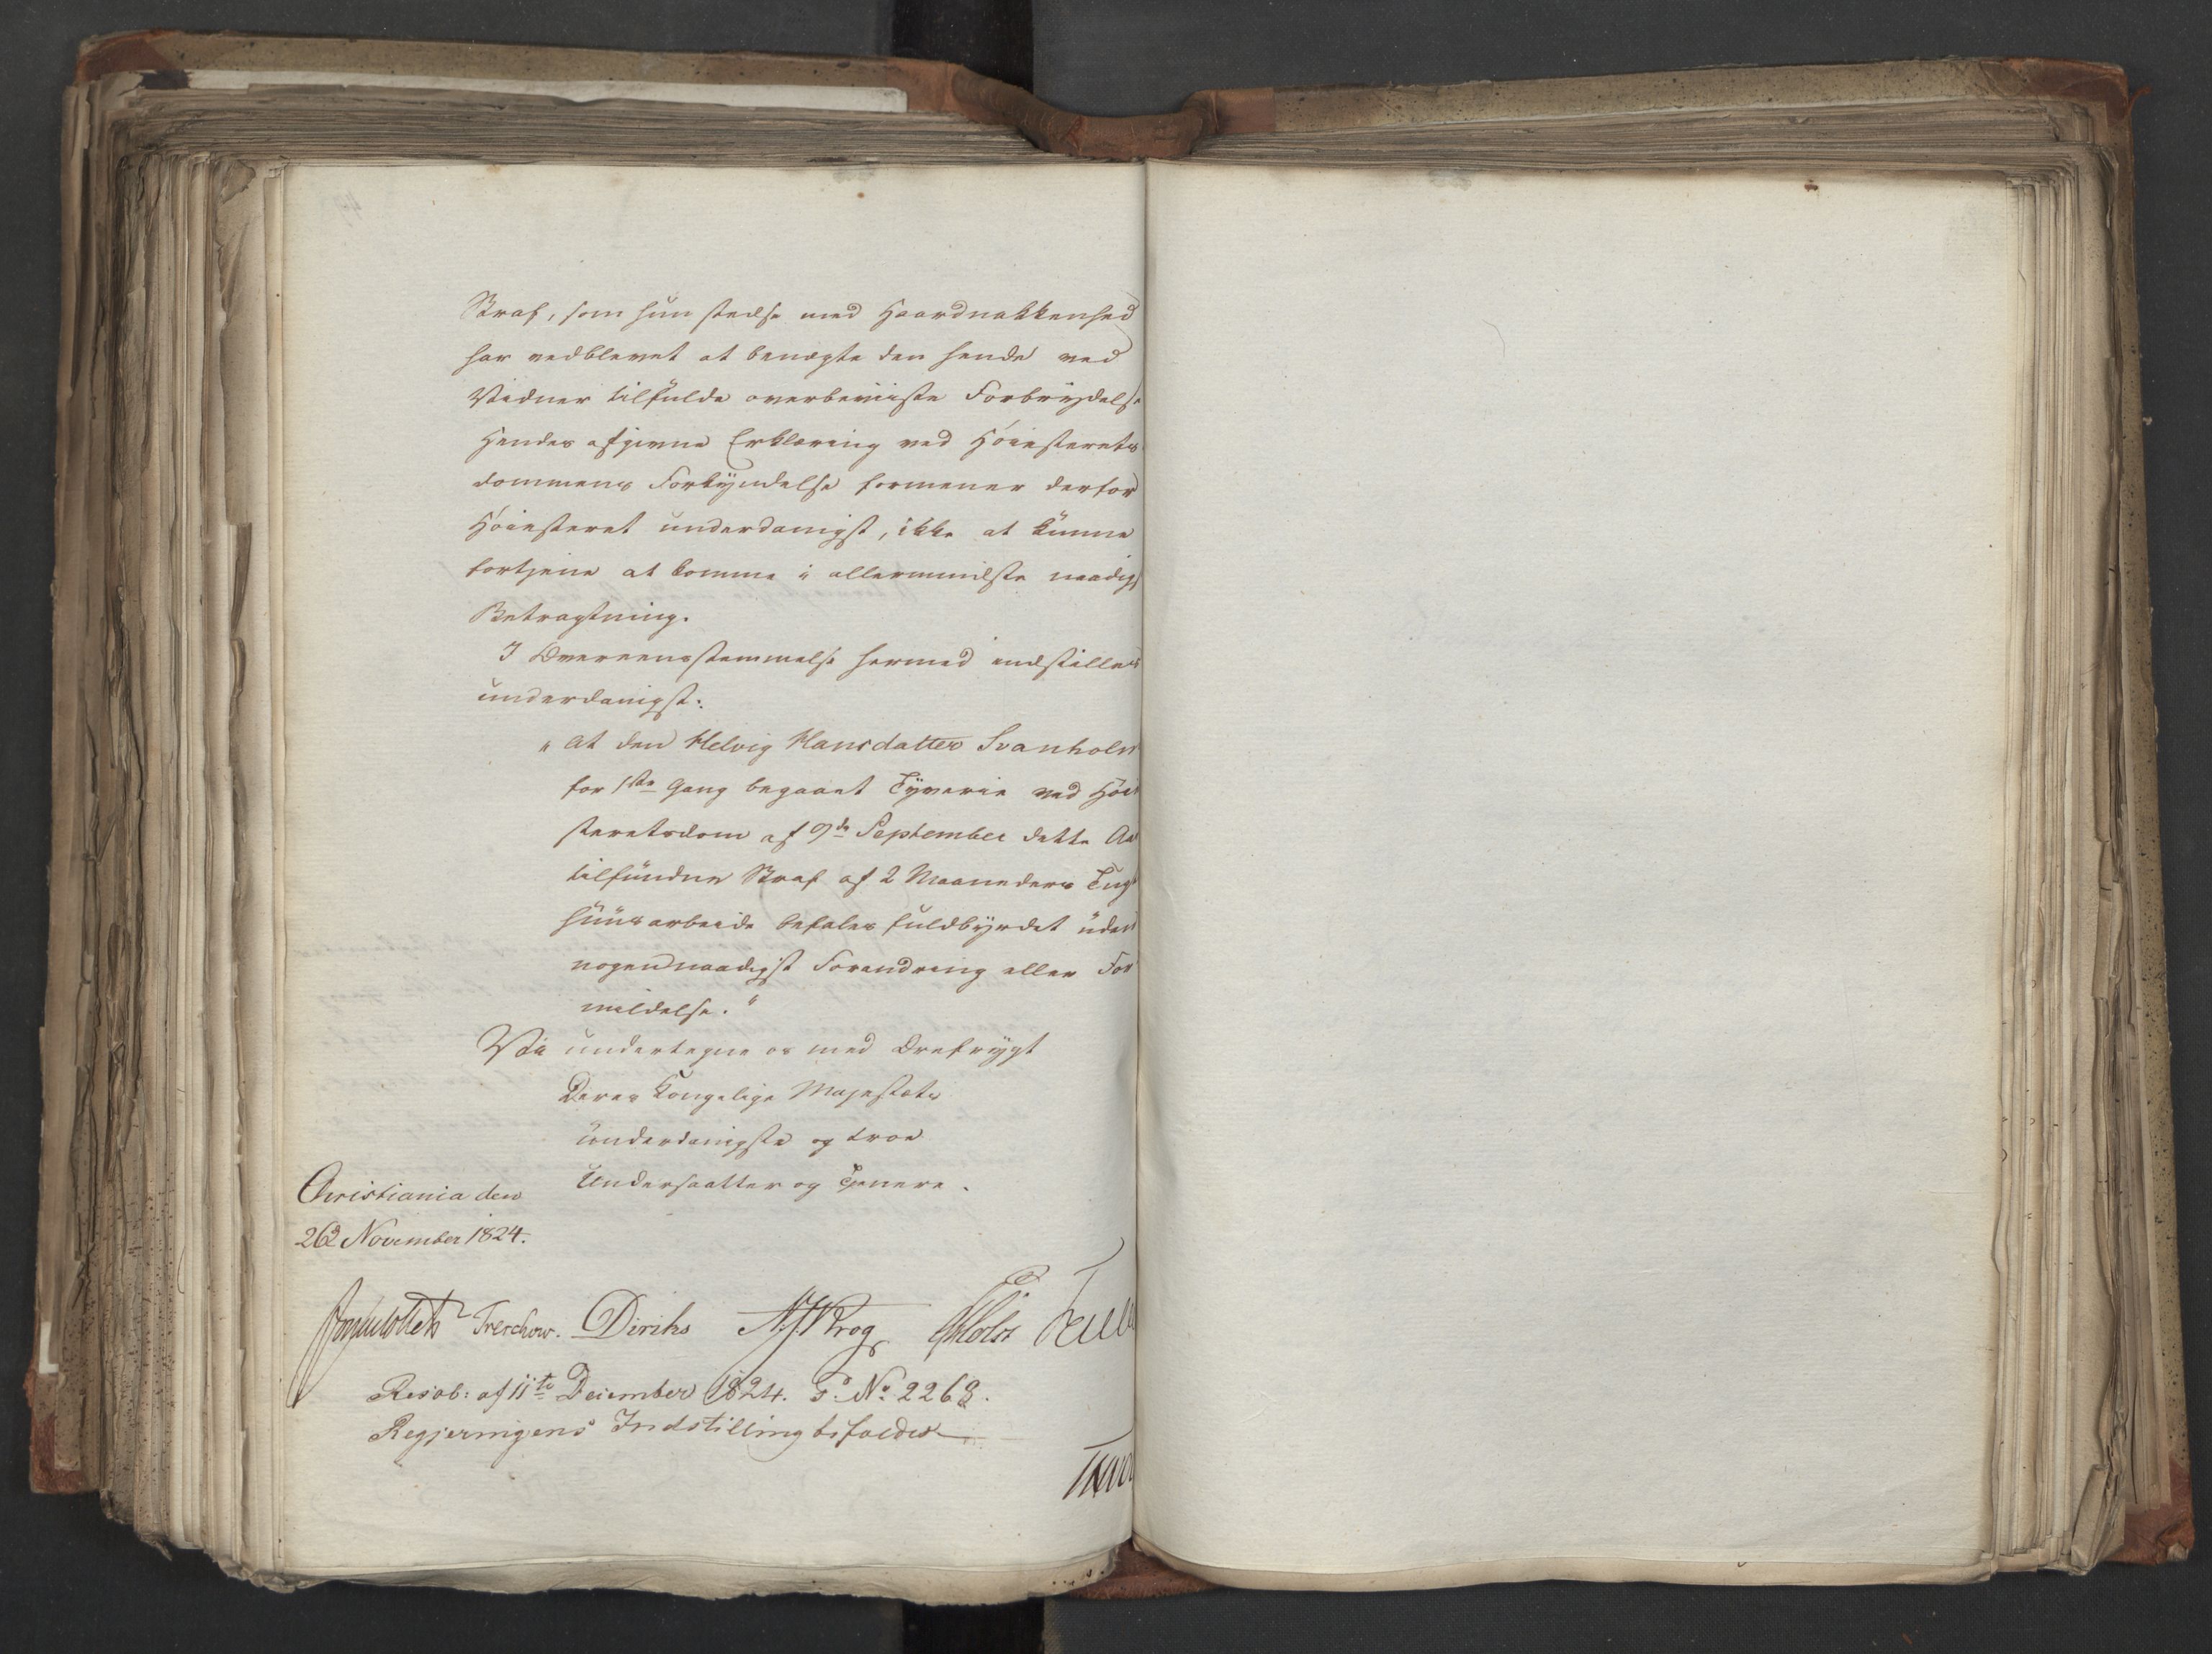 Straf, som hun stedse med Haardnakkenhed
har vedblevet at benægte den hende ved
Vidner tilfulde overbeviiste Forbrydelse
Hendes afgivne Erklæring ved Høiesterets
dommens Forkyndelse formener derfor
Høiesteret underdanigst, ikke at kunne
fortjene at komme i allermindste naadig
Betragtning.
I Overeensstemmelse hermed indstilles
underdanigst:
"at den Helvig Hansdatter Svanholm
for 1ste Gang begaaet Tyverie ved Høie
steretsdom af 9de September dette Aar
tilfundne Straf af 2 Maaneders Tugt
huusarbeide befales fuldbyrdet uden
nogen naadigst Forandring eller For
mildelse."
Vi undertegne os med Ærefrygt
Deres Kongelige Majestæts
underdanigste og troe
Undersaatter og Tjenere.
Christiania den
26de November 1824.
Treschow. Diriks Krog Holst
Resol: af 11te December 1824. P. No. 2263.
Regjeringens Indstilling bifaldes